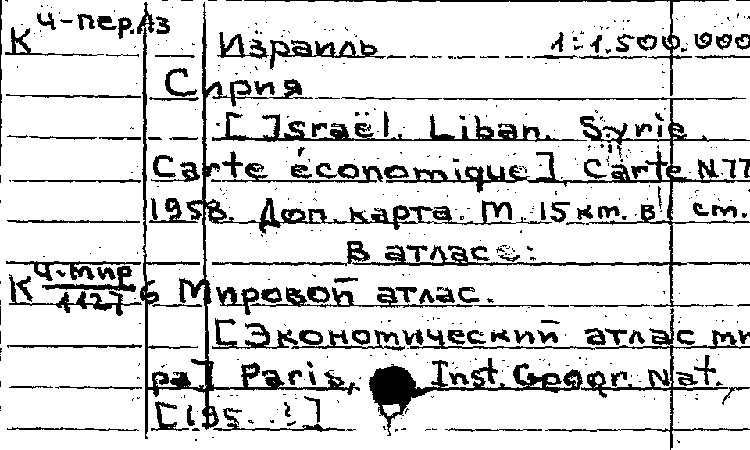 К ч-пер.Аз
Израиль 1:1.500.000
Сирия
[ ]Israёl. Liban. Syrie.
Carte économique]. Carte N 77
1958. Доп. карта. М. 15 км. в 1 см.
В атласе:
К ч-мир 1127 6 Мировой атлас.
[Экономический атлас ми
ра] Paris, Inst. Geogr. Nat.
[195..?]